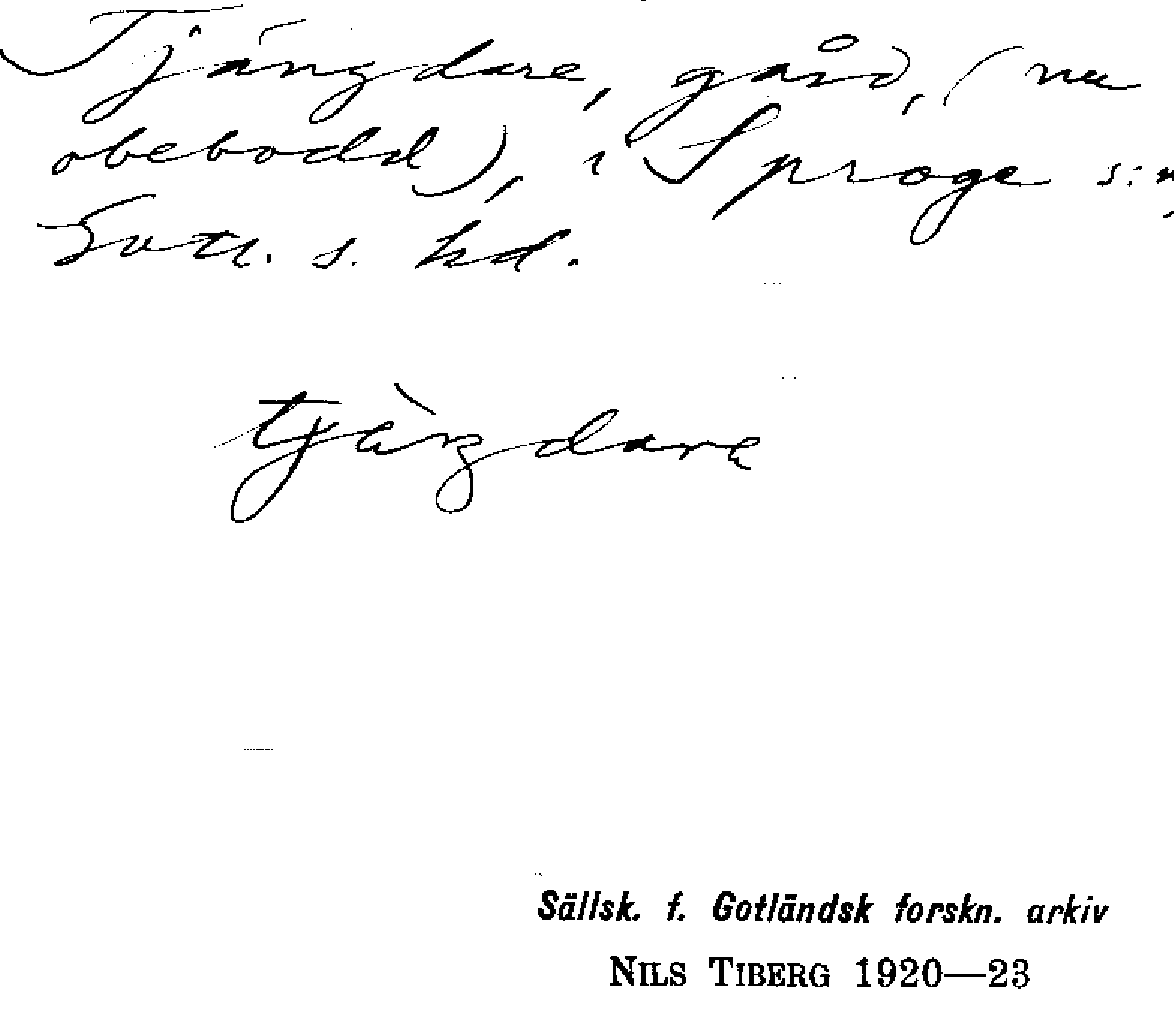 Tjängdare, gård, (nu
obebodd), i Sproge s:n,
Gotl. s. hd.
tjängdara
Sällsk. f. Gotländsk forskn. arkiv
NILS TIBERG 1920—23